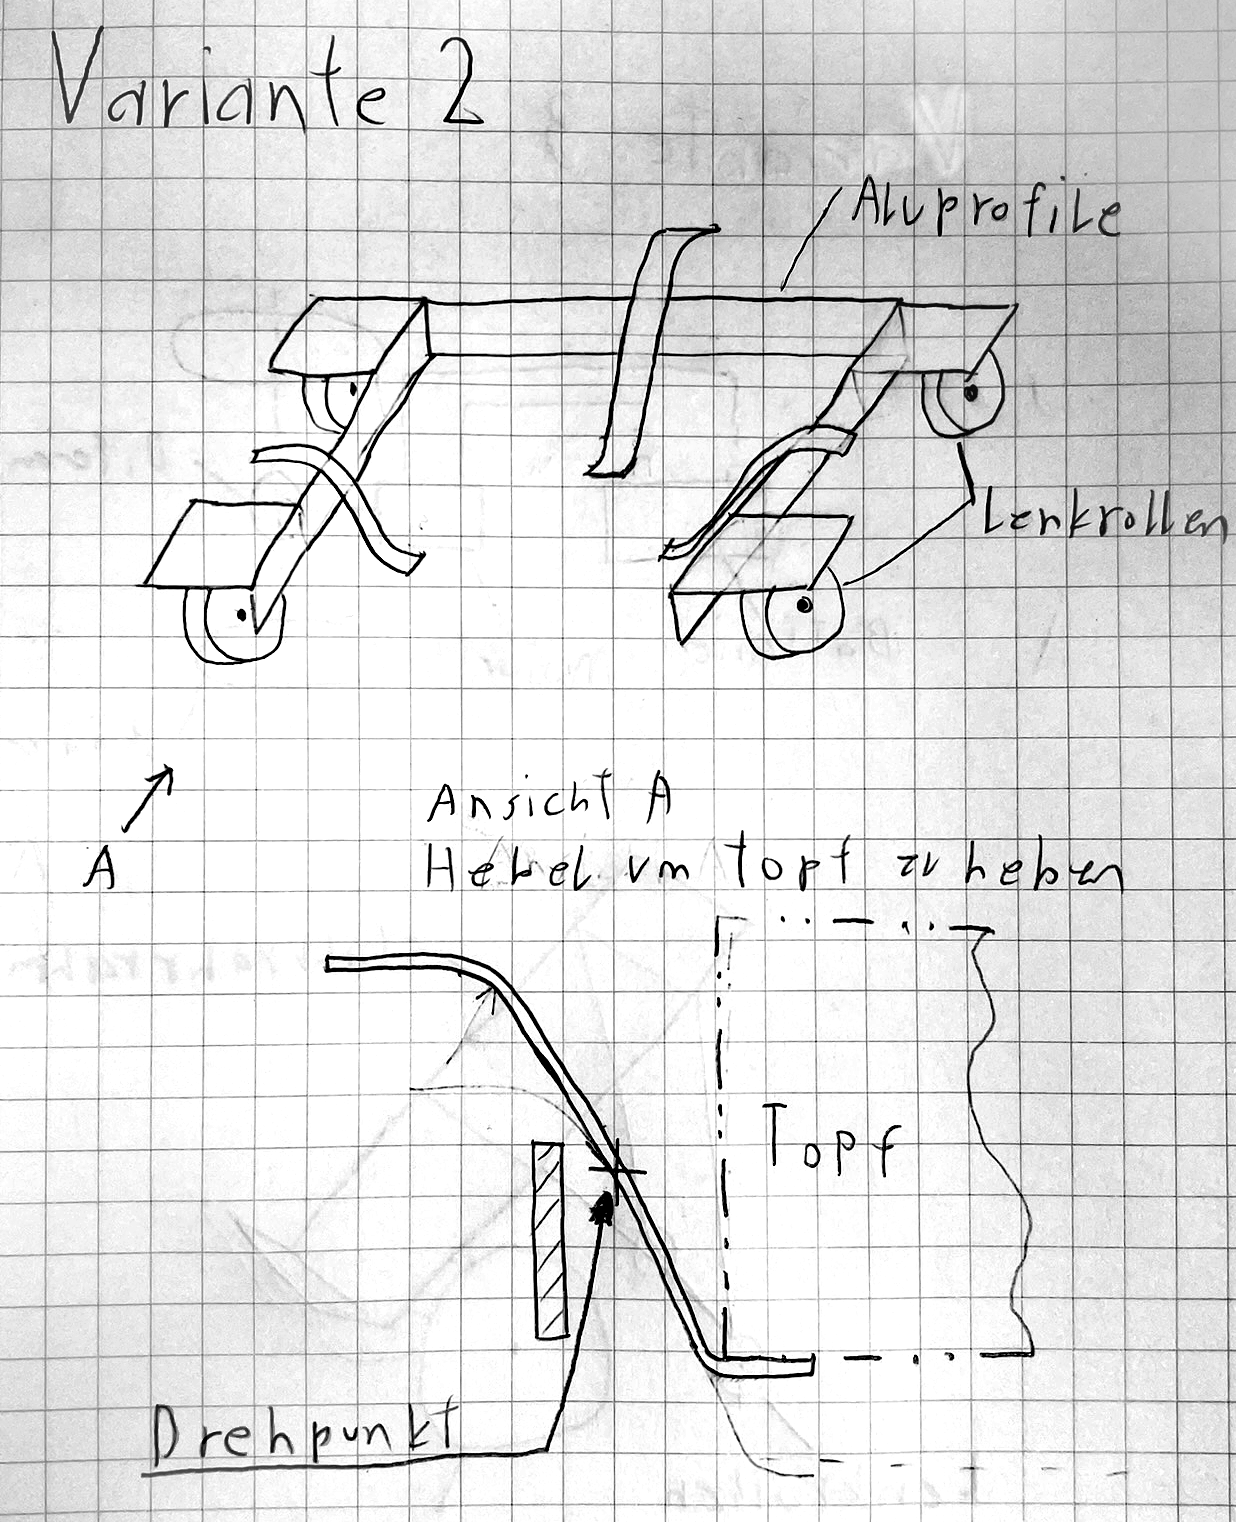 Variante 2
Aluprofile
Lenkrollen
A
Ansicht A
Hebel um topf zu heben
Topf
Drehpunkt